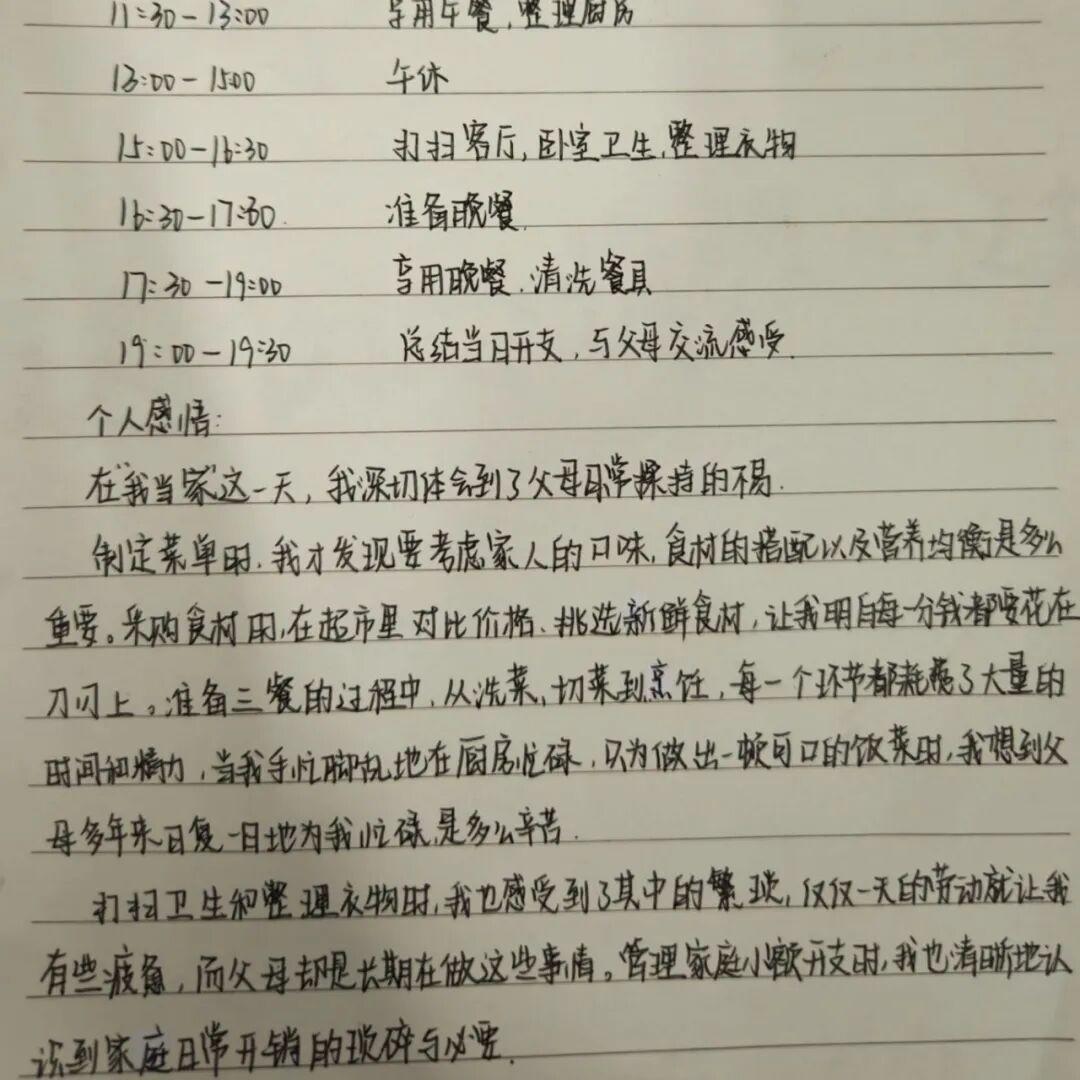 11:30-13:00 享用午餐,整理厨房
13:00-15:00 午休
15:00-16:30 打扫客厅,卧室卫生,整理衣物
16:30-17:30. 准备晚餐.
17:30-19:00 享用晚餐.清洗餐具
19:00-19:30 总结当日开支,与父母交流感受.
个人感悟:
在“我当家”这一天,我深切体会到了父母日常操持的不易.
制定菜单时.我才发现要考虑家人的口味.食材的搭配以及营养均衡是多么
重要。采购食材用,在超市里对比价格、挑选新鲜食材,让我明白每一分钱都要花在
刀刃上。准备三餐的过程中,从洗菜、切菜到烹饪,每一个环节都耗费了大量的
时间和精力,当我手忙脚乱地在厨房忙碌,只为做出一顿可口的饭菜时,我想到父
母多年来日复一日地为我忙碌,是多么辛苦.
打扫卫生和整理衣物时,我也感受到了其中的繁琐,仅仅一天的劳动就让我
有些疲惫,而父母却是长期在做这些事情。管理家庭小额开支时,我也清晰地认
识到家庭日常开销的琐碎与必要.